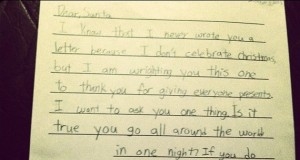 Dear, Santa
I know that I never wrote you a
letter because I don't celebrate christmas
but I am wrighting you this one
to thank you for giving everyone presents
I want to ask you one thing. Is it
true you go all around the world
in one night? If you do